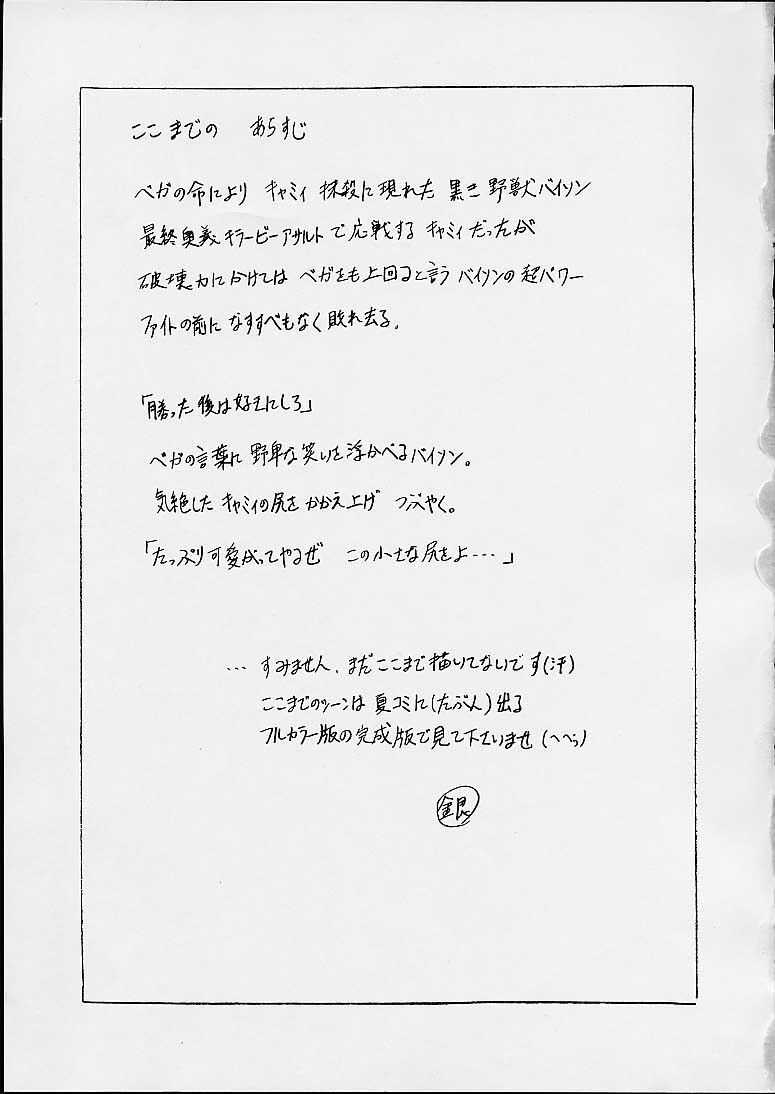 ここまでの あらすじ
ベガの命により キャミィ 抹殺に現れた 黒き 野獣バイソン
最終奥義キラービーアサルトで応戦する キャミィだったが
破壊力にかけては ベガをも上回ると言う バイソンの超パワー
ファイトの前に なすすべもなく 敗れ去る。
「勝った後は好きにしろ」
ベガの言葉に 野卑な笑いを浮かべるバイソン。
気絶した キャミィの尻を かかえ上げ つぶやく。
「たっぷり可愛がってやるぜ この小さな尻をよ…」
… すみません、まだここまで描いてないです(汗)
ここまでのシーンは 夏コミに(たぶん)出る
フルカラー版の完成版で見て下さいませ(へへっ)
銀